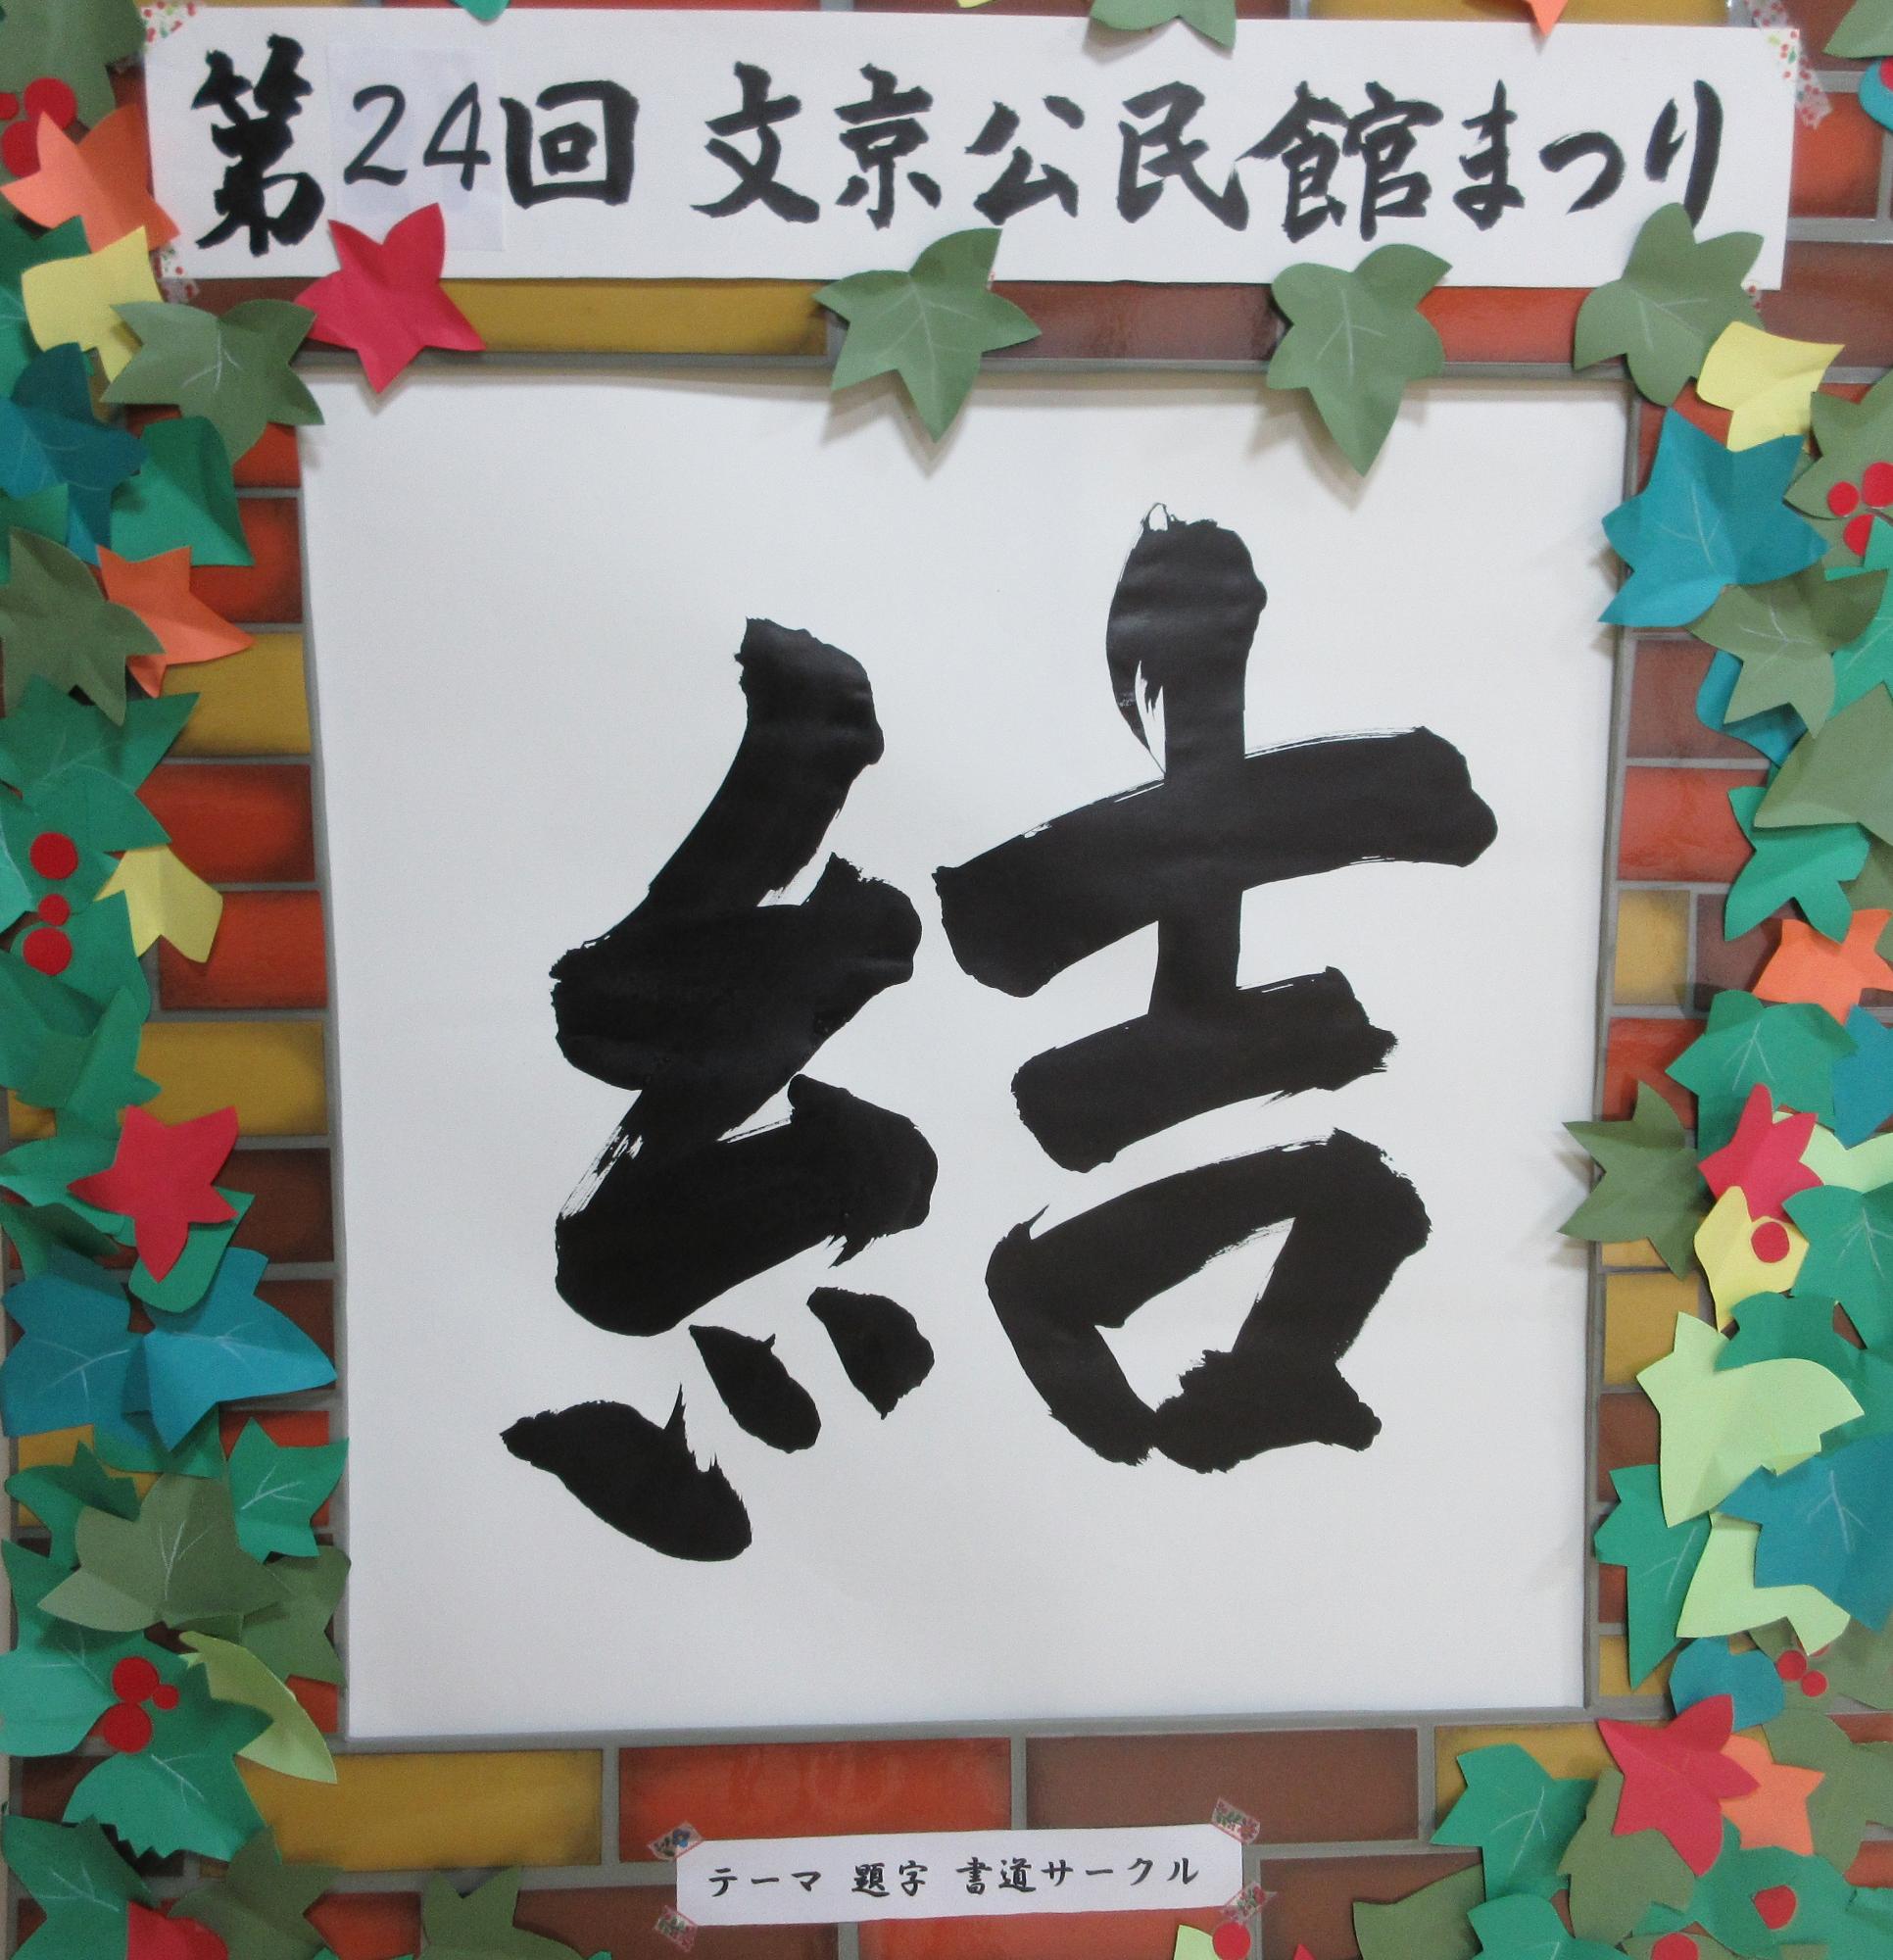 第24回 文京公民館まつり
結
テーマ 題字 書道サークル